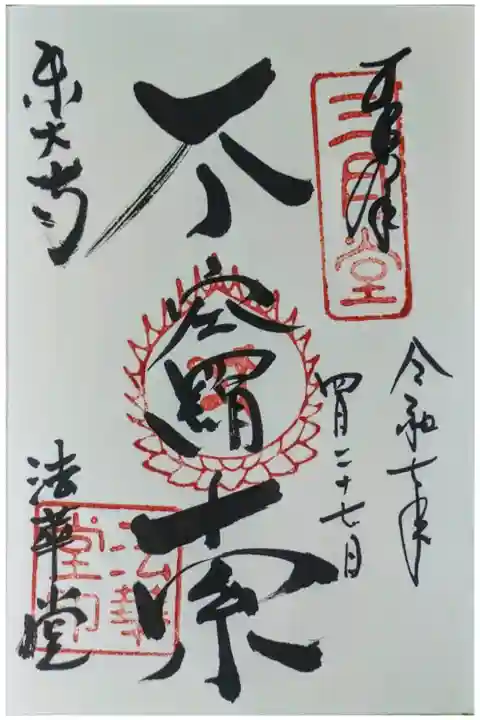 奉拝
三月堂
令和七年
四月二十七日
不空羂索
東大寺
法華堂
法華堂印